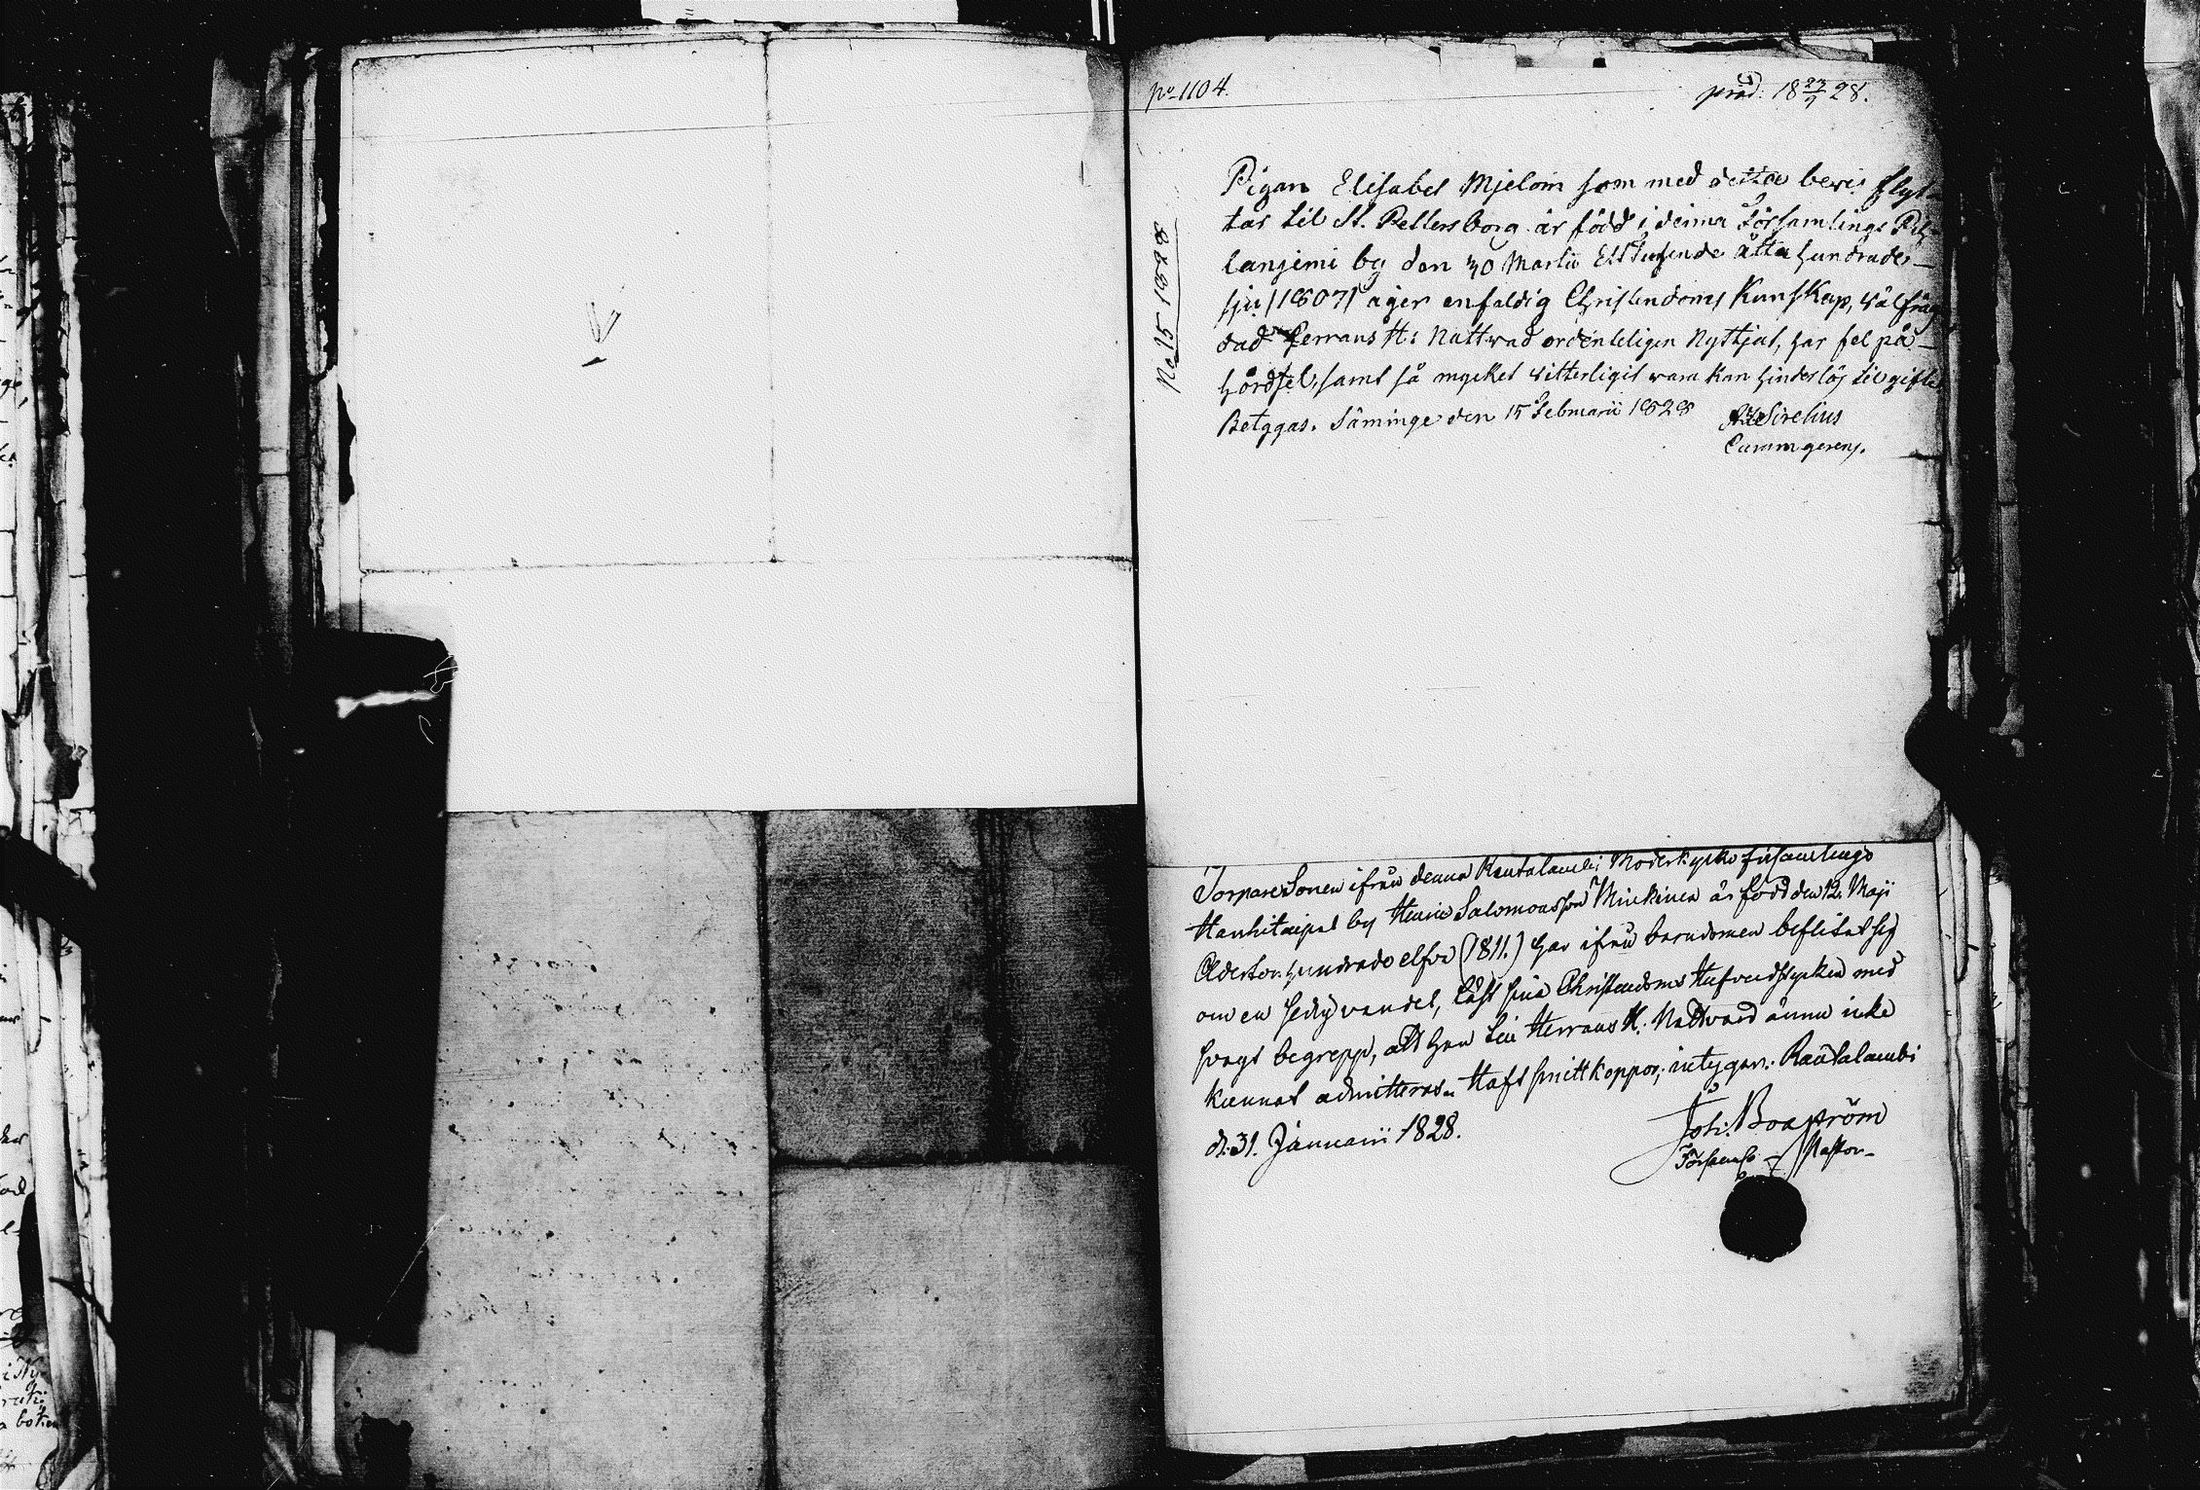 pr. 1104.
præd. 18 27/9 28.
No 15 1828
Pigan Elisabet Mjeloin som med detta bevis flyt-
tas til St. Pettersborg är född i denna Församlings Pih-
lanjemi by den 30 Martii Ett tusende åtta hundrade-
sju (1807) äger enfaldig Christendoms Kunskap, välfräg-
dad Herrans H: Nattvard ordenteligen Nyttjat, har fel på
hördsel, samt så mycket vitterligit vara kan hinderlös til gifte
Betygas. Säminge den 15 Februarii 1828
Sirelius
Curam gerens.
Torpare Sonen ifrån denna Rautalambi Moderkyrko församlings
Hanhitaipal by Henric Salomonsson Minkinen är född den 12. Maji
Adertonhundrade elfva (1811.) har ifrån barndomen beflitat sig
om en sedig vandel, läst sina Christendoms Hufvudstycken med
svagt begrepp, att han till Herrans H. Nattvard ännu icke
kunnat admitteras. Haft smittkoppor; intygar. Rautalambi
d. 31. Januarii 1828.
Joh. Boxström
Församl. Pastor